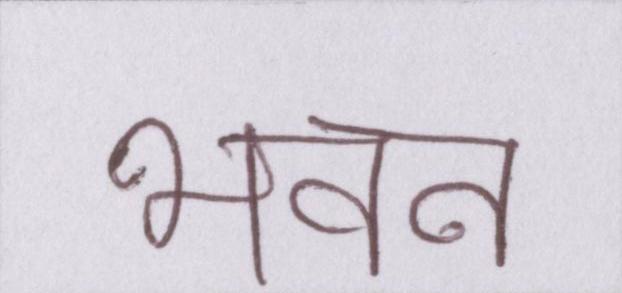 भवन